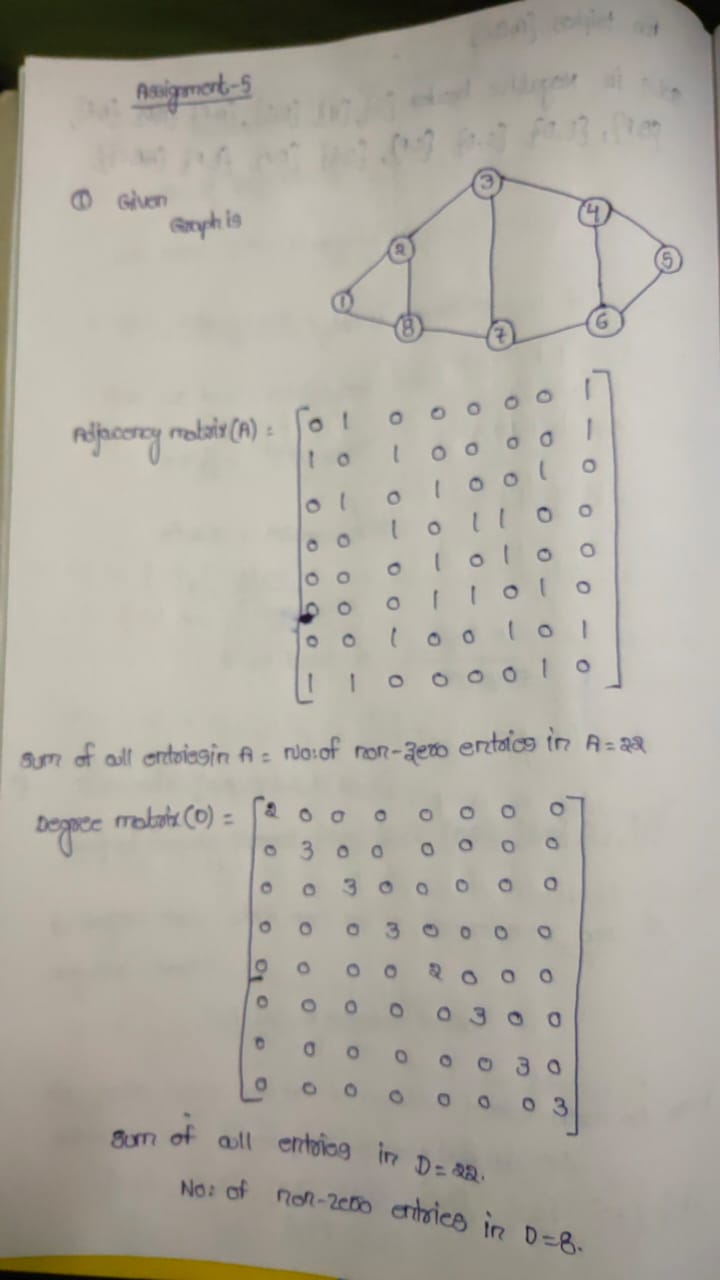 Assignment-5
① Given
Graph is
3
4
2
5
1
8
7
6
Adjacency matrix (A) =
0 1 0 0 0 0 0 1
1 0 1 0 0 0 0 1
0 1 0 1 0 0 1 0
0 0 1 0 1 1 0 0
0 0 0 1 0 1 0 0
0 0 0 1 1 0 1 0
0 0 1 0 0 1 0 1
1 1 0 0 0 0 1 0
Sum of all entries in A = No: of non-zero entries in A = 22
Degree matrix (D) =
2 0 0 0 0 0 0 0
0 3 0 0 0 0 0 0
0 0 3 0 0 0 0 0
0 0 0 3 0 0 0 0
0 0 0 0 2 0 0 0
0 0 0 0 0 3 0 0
0 0 0 0 0 0 3 0
0 0 0 0 0 0 0 3
Sum of all entries in D = 22.
No: of non-zero entries in D = 8.